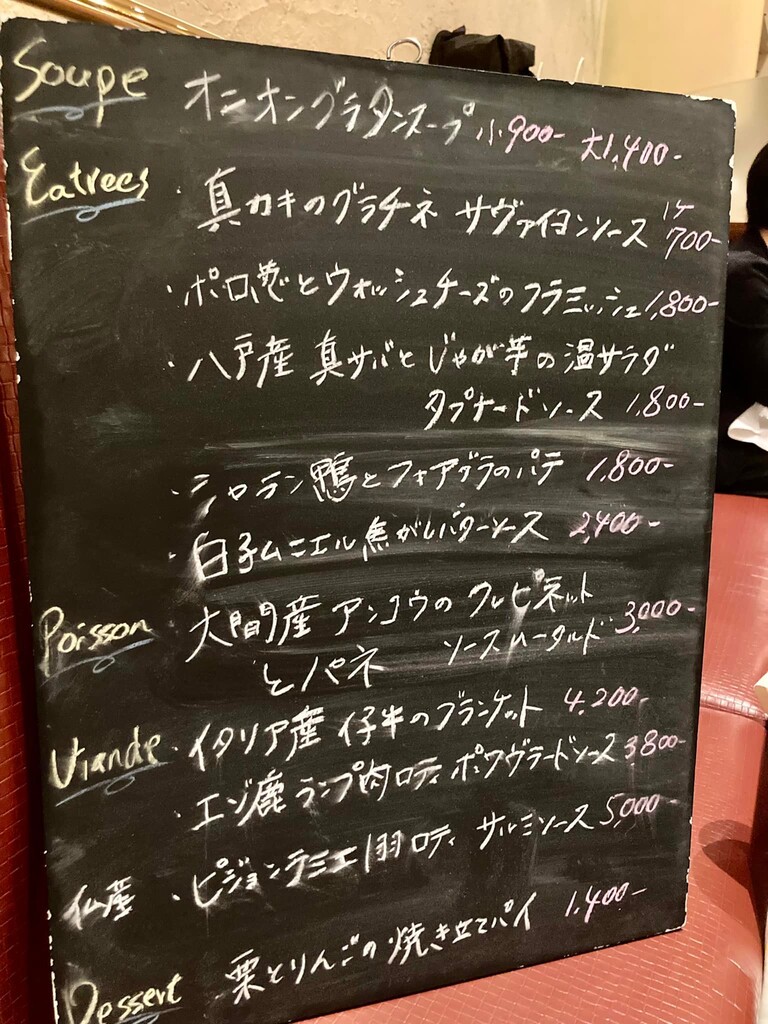 Soupe オニオングラタンスープ 小900- 大1,400-
Entrees ・真カキのグラチネ サヴァイヨンソース 1ケ 700-
・ポロ葱とウォッシュチーズのフラミッシュ 1,800-
・八戸産 真サバとじゃが芋の温サラダ
タプナードソース 1,800-
・シャラン鴨とフォアグラのパテ 1,800-
・白子ムニエル焦がしバターソース 2,400-
Poisson 大間産アンコウのクレピネット
とパネ ソースムータルド 3,000-
Viande ・イタリア産仔牛のブランケット 4,200-
・エゾ鹿ランプ肉ロティ ポワヴラードソース 3,800-
仏産 ・ピジョンラミエ1羽ロティ サルミソース 5,000-
Dessert 栗とりんごの焼き立てパイ 1,400-